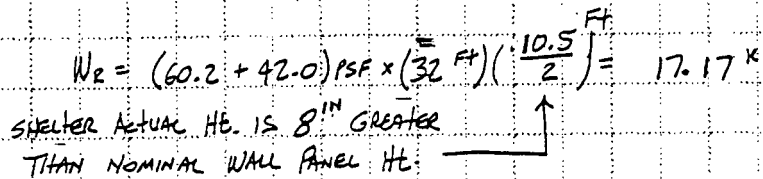 WR = (60.2 + 42.0) PSF x (32 FT)(10.5/2) FT = 17.17 K
SHELTER ACTUAL Ht. IS 8 IN GREATER
THAN NOMINAL WALL PANEL Ht.